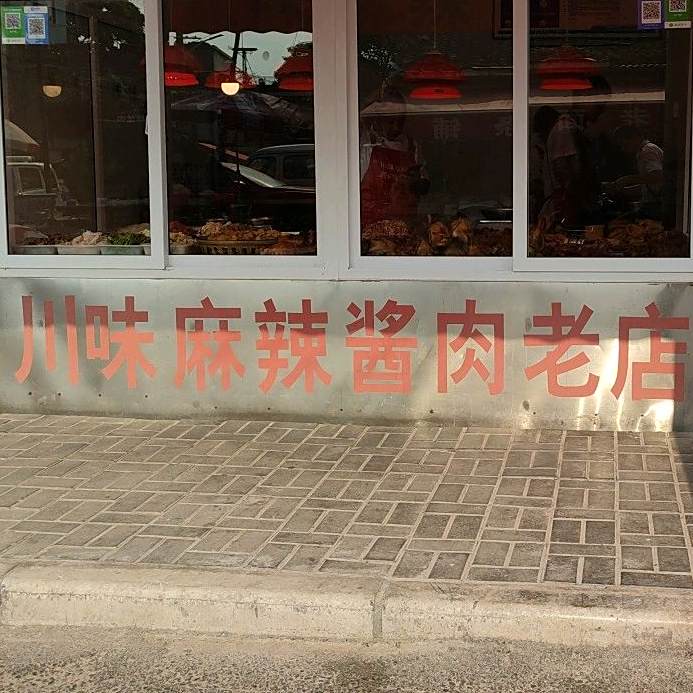 川味麻辣酱肉老店